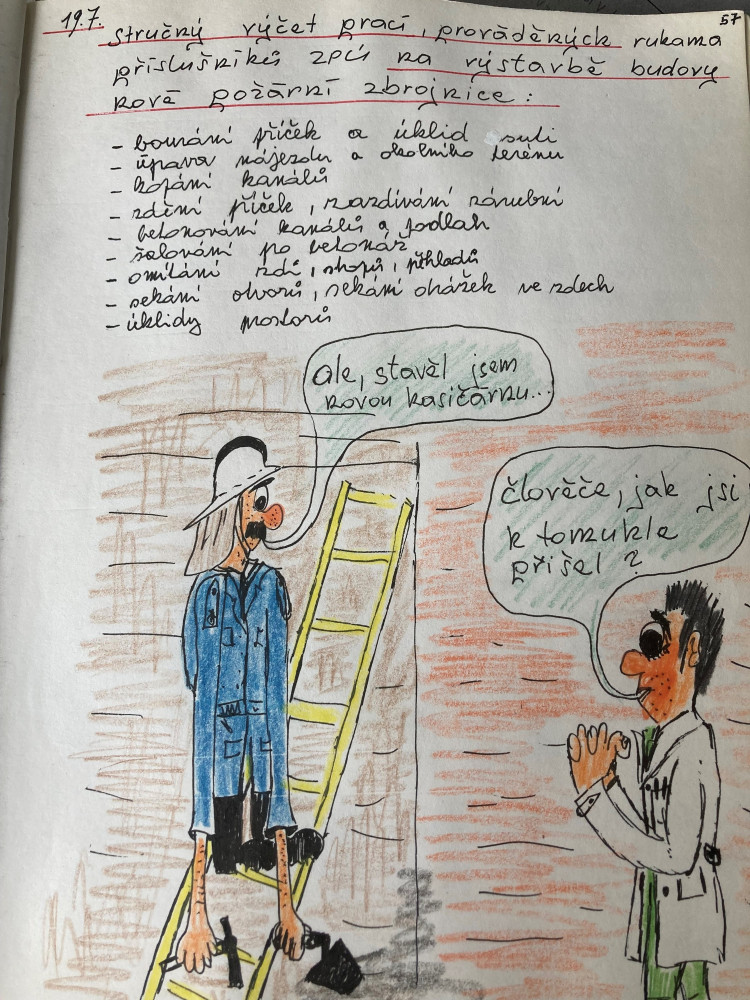 57
19.7. Stručný výčet prací, prováděných rukama
příslušníků ZPÚ na výstavbě budovy
nové požární zbrojnice:
- bourání příček a úklid suti
- úprava nájezdu a okolního terénu
- kopání kanálů
- zdění příček, zazdívání zárubní
- betonování kanálů a podlah
- šalování po betonáž
- omítání zdí, stropů, překladů
- sekání otvorů, sekání drážek ve zdech
- úklidy prostorů
Ale, stavěl jsem
novou hasičárnu...
Člověče, jak jsi
k tomuhle
přišel?